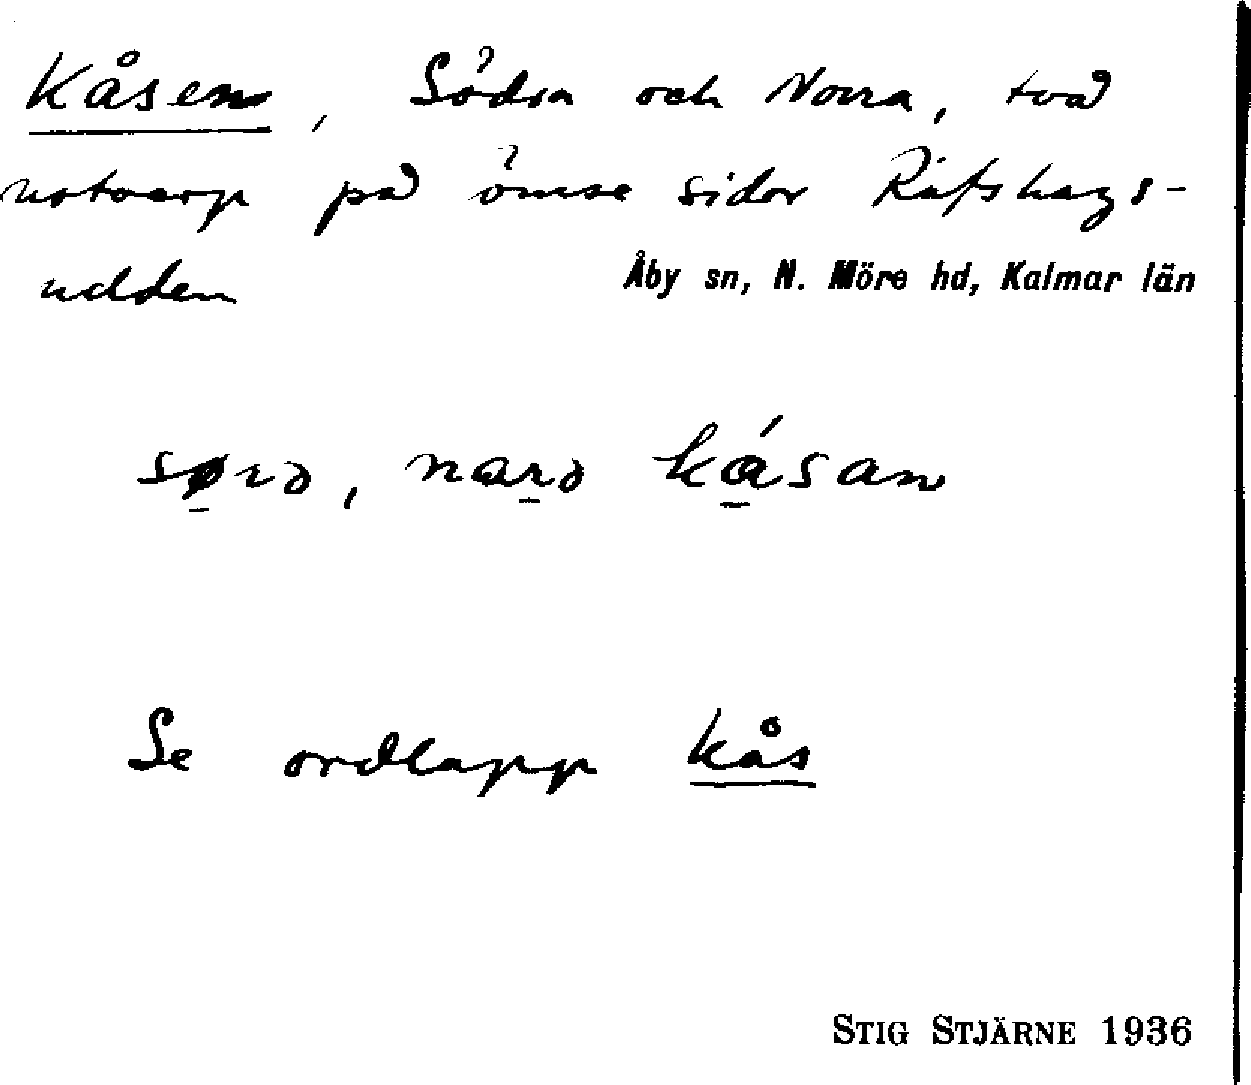 Kåsen, Södra och Norra, två
notvarp på ömse sidor Räfshags-
udden
Åby sn, N. Möre hd, Kalmar län
Se ordlapp kås
STIG STJÄRNE 1936